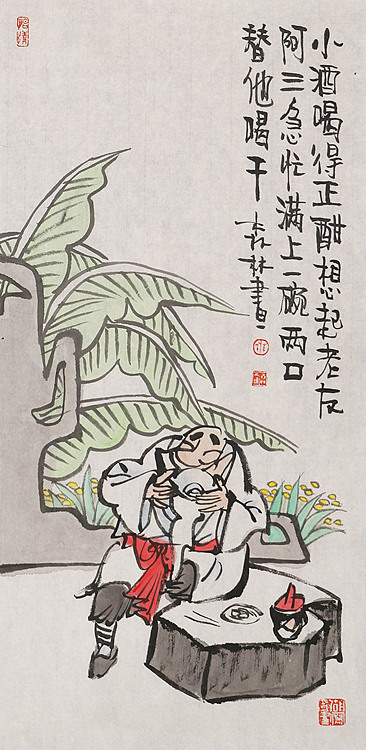 小酒喝得正酣想起老友
阿三急忙满上一碗两口
替他喝干 森林画